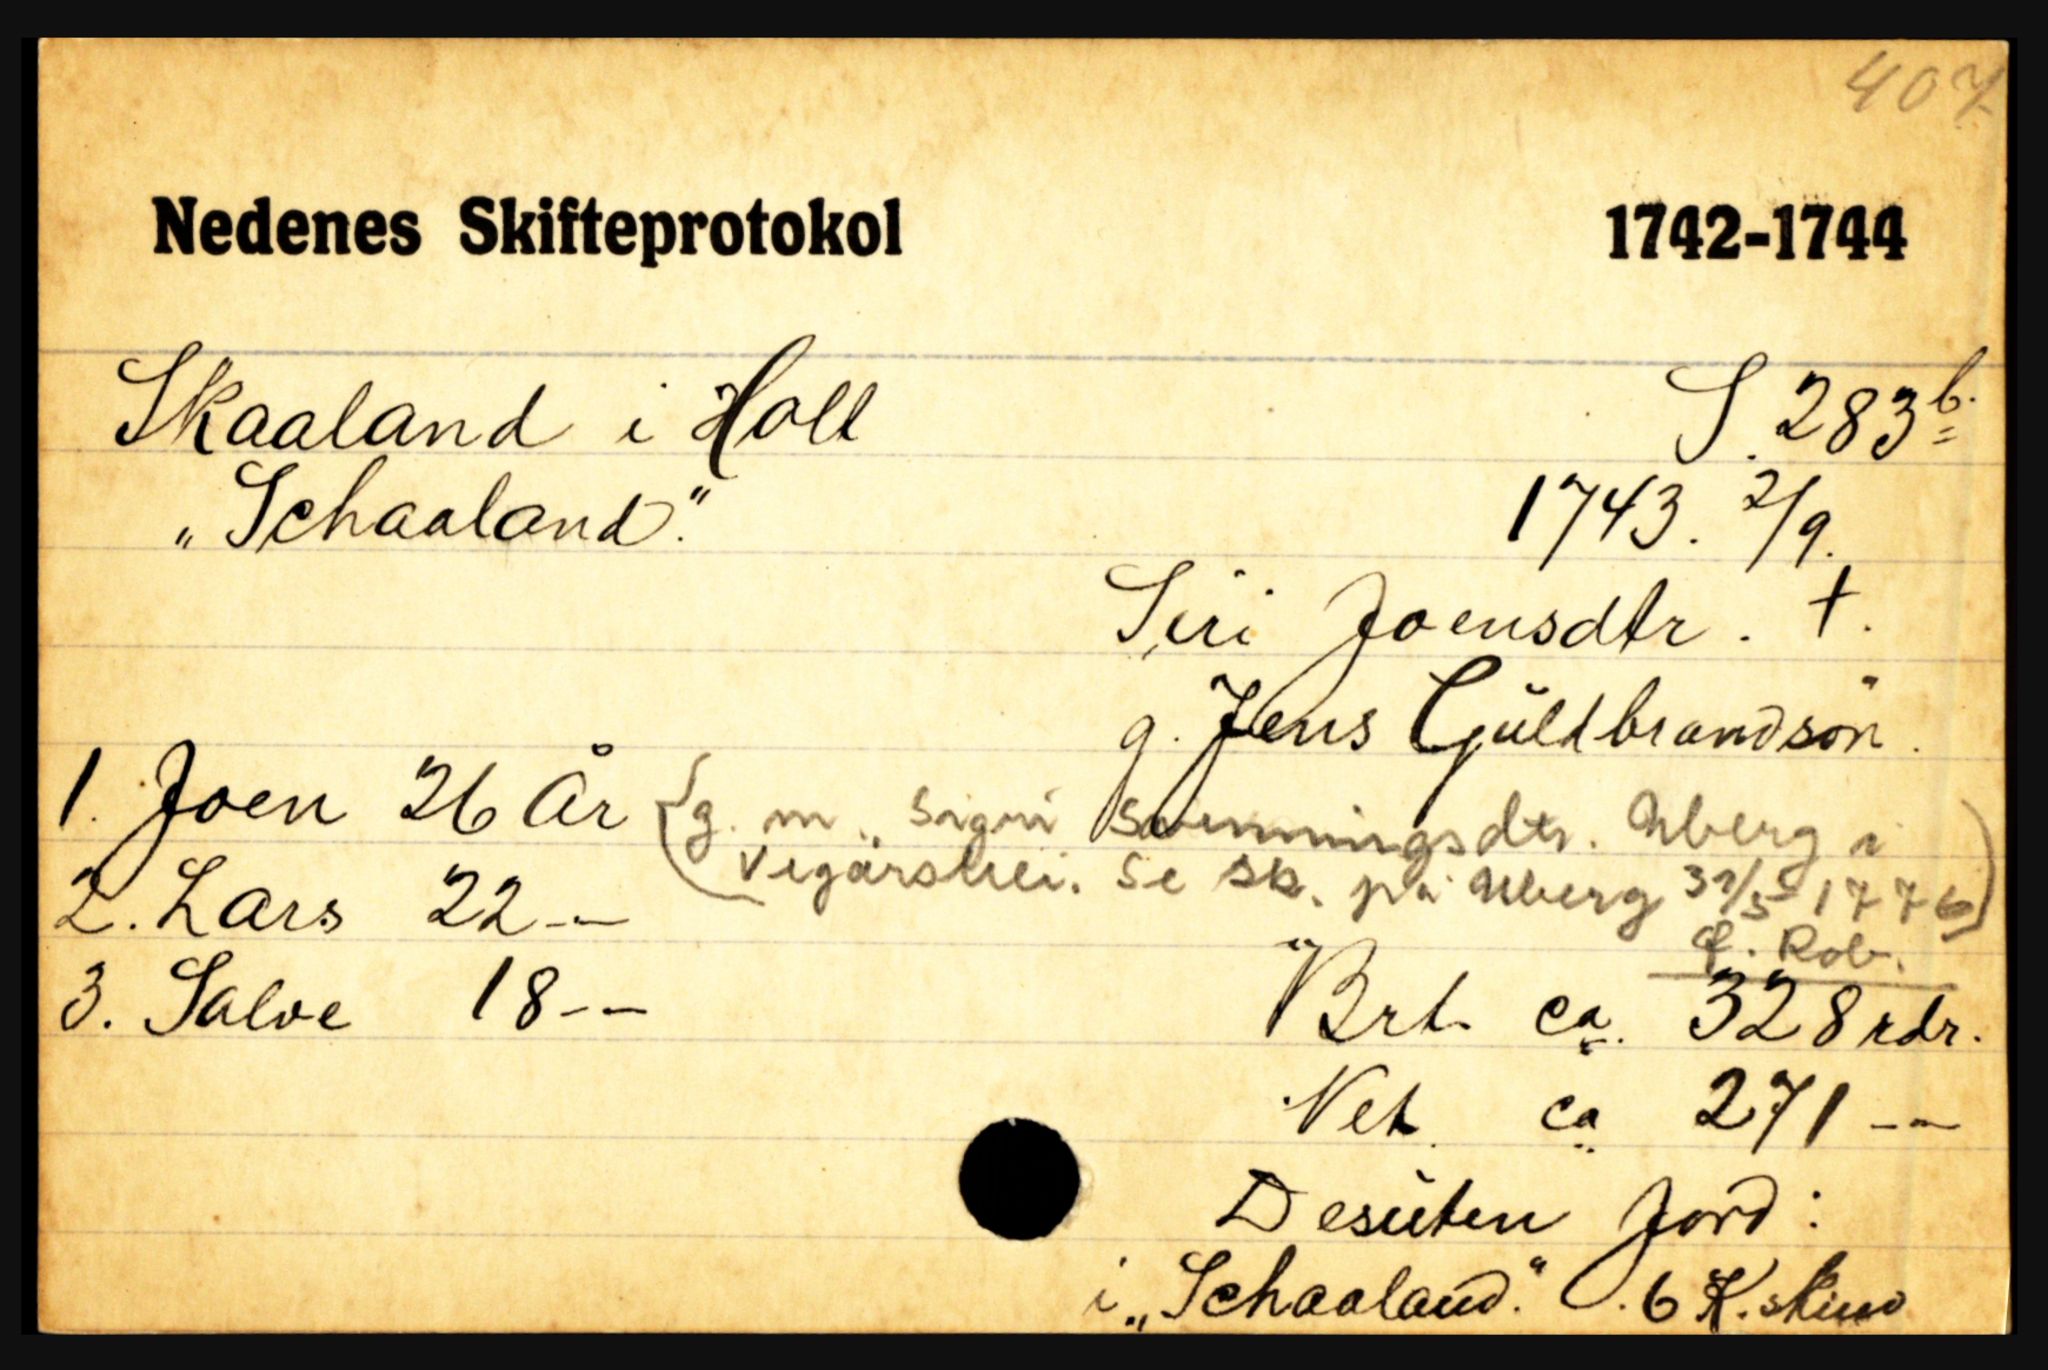 407
Nedenes Skifteprotokol 1742-1744
Skaaland i Holt S. 283b.
„Schaaland." 1743. 2/9.
Siri Joensdtr. †.
g. Jens Guldbrandsön.
1. Joen 26 År (g. m. Signi Svenningsdtr. Uberg i
Vegårshei. Se sk. på Uberg 31/5 1776)
2. Lars 22 --
Rob.
3. Salve 18 -- Brt. ca. 328 rdr.
Net. ca 271 --
Desuten Jord:
i „Schaaland." 6 K. skind